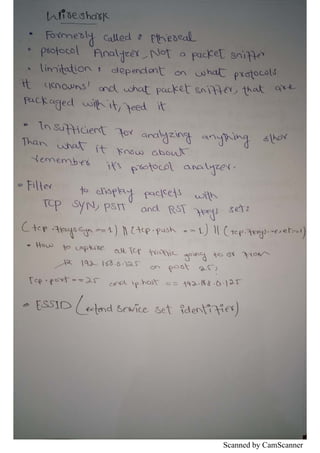 Wireshark
• Formerly called : Ethereal
• protocol Analyzer, Not a packet sniffer
• limitation : dependent on what protocols
it 'knowns' and what packet sniffer, that are
packaged with it, feed it
• Insufficient for analyzing anything other
than what it know about
remember it's protocol analyzer.
• Filter to display packets with
TCP SYN, PSH and RST flags set:
(tcp.flags.syn == 1) || (tcp.push == 1) || (tcp.flags.reset==1)
• How to capture all TCP traffic going to or from
192.168.0.125 on port 25;
Tcp.port == 25 and ip.host == 192.168.0.125
• ESSID (extend service set identifier)
Scanned by CamScanner